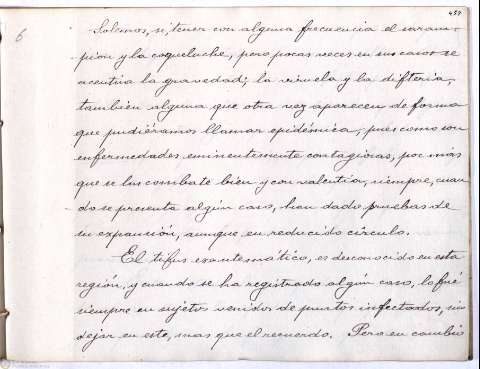 6
Solemos, si, tener con alguna frecuencia el saram-
pion y la coqueluche, pero pocas veces en sus casos se
acentúa la gravedad; la viruela y la difteria,
tambien alguna que otra vez aparecen de forma
que pudiéramos llamar epidémica, pues como son
enfermedades eminentemente contagiosas, por más
que se las combate bien y con valentia, siempre, cuan-
do se presenta algún caso, han dado pruebas de
su expansión, aunque en reducido círculo.
El tifus exantemático, es desconocido en esta
región, y cuando se ha registrado algún caso, lo fué
siempre en sujetos venidos de puntos infectados, sin
dejar en este, mas que el recuerdo. Pero en cambio